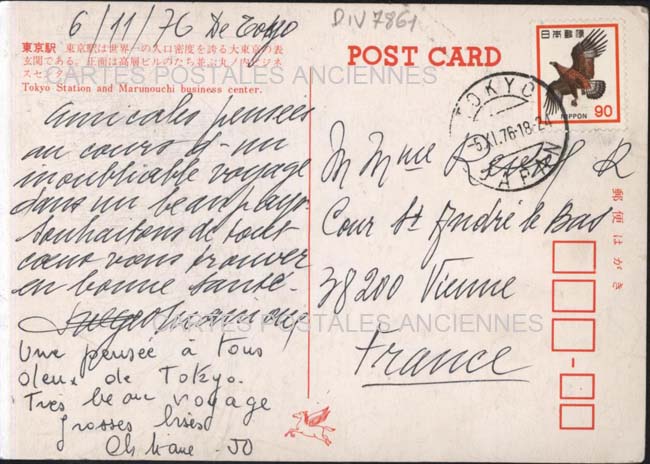 6/11/76 De Tokyo
DIV7861
東京駅 東京駅は世界一の人口密度を誇る大東京の表
玄関である。正面は高層ビルのたち並ぶ丸ノ内ビジネ
スセンター
Tokyo Station and Marunouchi business center.
CARTES POSTALES ANCIENNES
amicales pensées
au cours d'un
inoubliable voyage
dans un beau pays.
souhaitons de tout
cœur vous trouver
en bonne santé.
Une pensée à tous
deux de Tokyo.
Très beau voyage
grosses bises
JO
POST CARD
日本郵便
NIPPON 90
TOKYO
5.XI.76.18-24
JAPAN
M Mme R
Cour St André le Bas
38200 Vienne
France
郵便はがき
CARTES POSTALES ANCIENNES